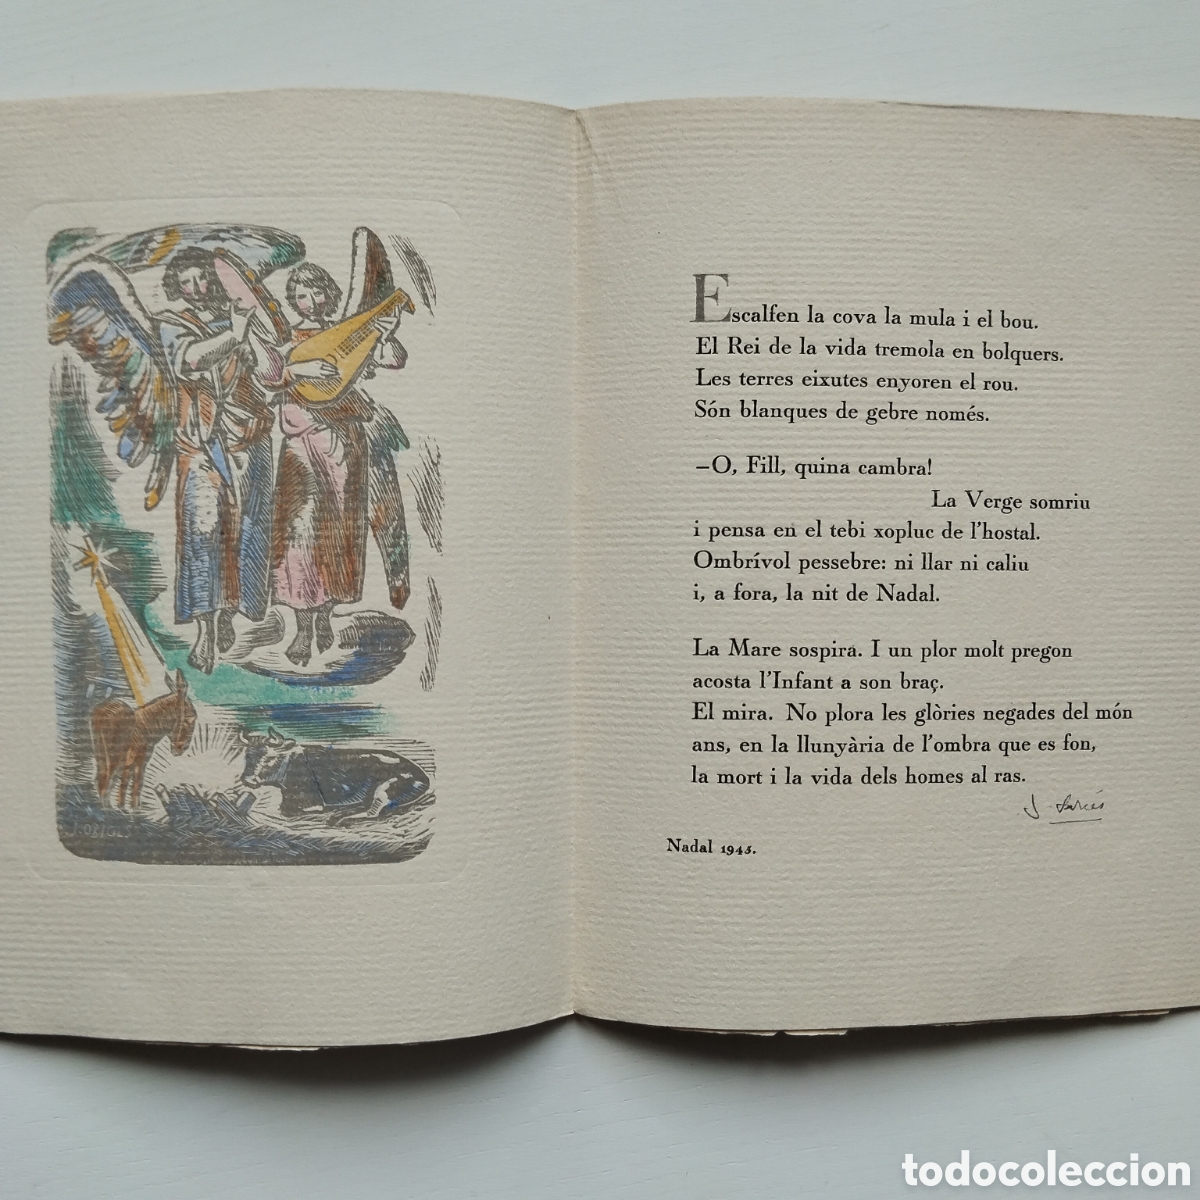 J. OBIOLS
Escalfen la cova la mula i el bou.
El Rei de la vida tremola en bolquers.
Les terres eixutes enyoren el rou.
Són blanques de gebre només.
—O, Fill, quina cambra!
La Verge somriu
i pensa en el tebi xopluc de l'hostal.
Ombrívol pessebre: ni llar ni caliu
i, a fora, la nit de Nadal.
La Mare sospira. I un plor molt pregon
acosta l'Infant a son braç.
El mira. No plora les glòries negades del món
ans, en la llunyària de l'ombra que es fon,
la mort i la vida dels homes al ras.
J.
Nadal 1945.
todocoleccion